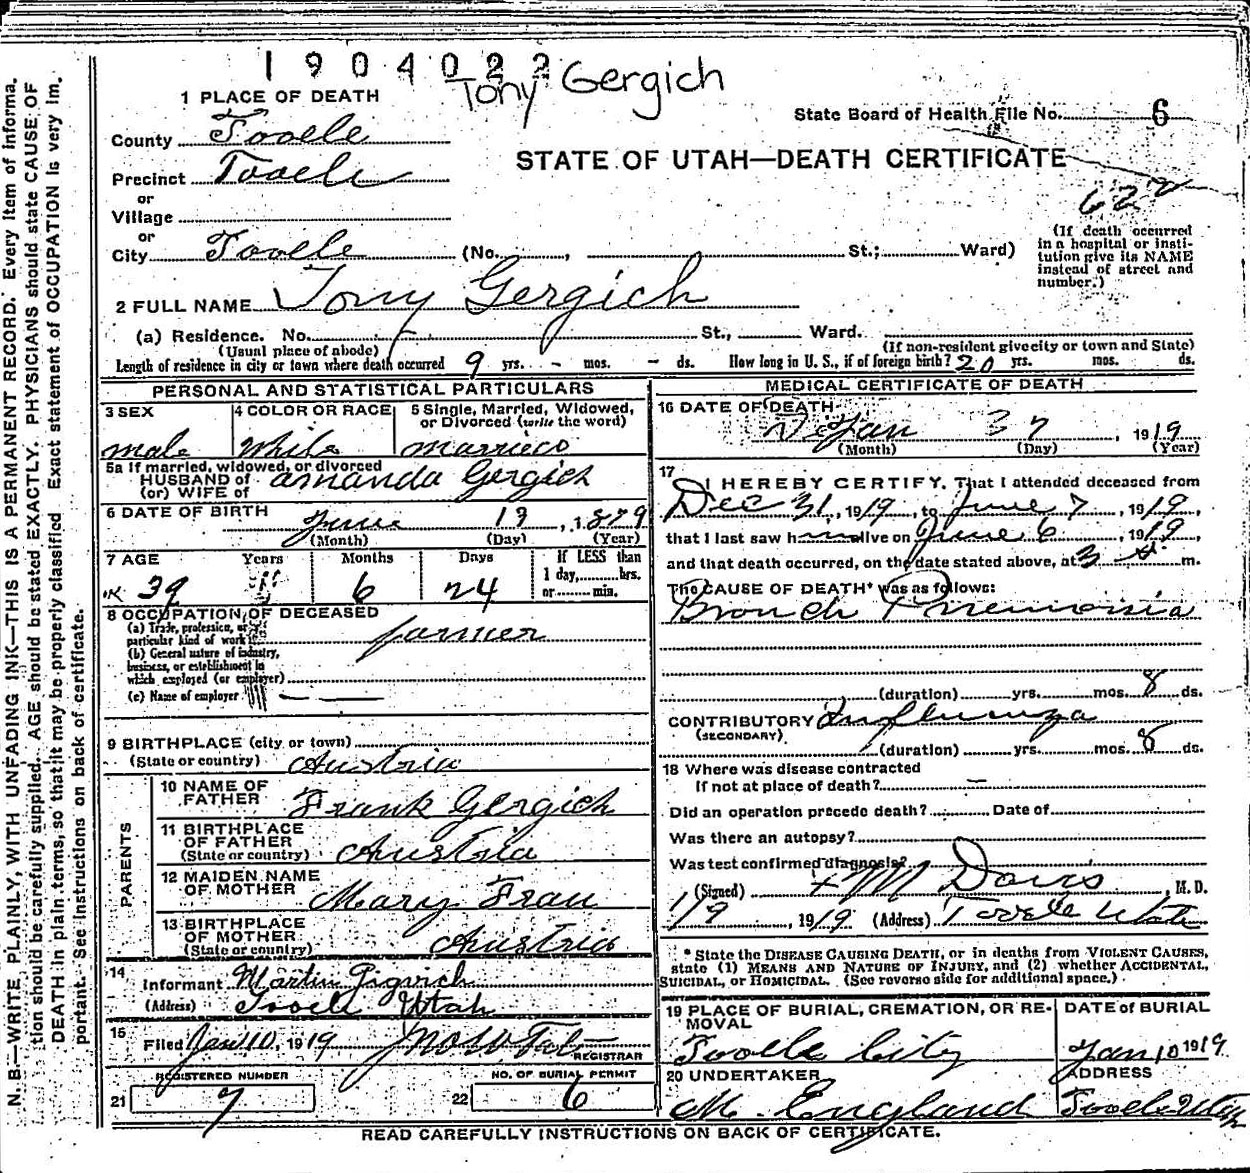 1904022
Tony Gergich
1 PLACE OF DEATH
State Board of Health File No. 6
County Tooele
STATE OF UTAH—DEATH CERTIFICATE
Precinct Tooele
622
or
Village
or
City Tooele (No. , St.; Ward)
(If death occurred in a hospital or institution give its NAME instead of street and number.)
2 FULL NAME Tony Gergich
(a) Residence. No. St., Ward.
(Usual place of abode) (If non-resident give city or town and State)
Length of residence in city or town where death occurred 9 yrs. - mos. - ds. How long in U. S., if of foreign birth? 20 yrs. mos. ds.
PERSONAL AND STATISTICAL PARTICULARS
3 SEX 4 COLOR OR RACE 5 Single, Married, Widowed, or Divorced (write the word)
male White married
5a If married, widowed, or divorced
HUSBAND of Amanda Gergich
(or) WIFE of
6 DATE OF BIRTH June 13, 1879
(Month) (Day) (Year)
7 AGE Years Months Days If LESS than
1 day, hrs.
39 6 24 or min.
8 OCCUPATION OF DECEASED
(a) Trade, profession, or particular kind of work farmer
(b) General nature of industry,
business, or establishment in
which employed (or employer)
(c) Name of employer
9 BIRTHPLACE (city or town)
(State or country) Austria
PARENTS
10 NAME OF FATHER Frank Gergich
11 BIRTHPLACE OF FATHER
(State or country) Austria
12 MAIDEN NAME OF MOTHER Mary Frau
13 BIRTHPLACE OF MOTHER
(State or country) Austria
14 Informant Martin Gigvich
(Address) Tooele Utah
15 Filed Jan 10, 1919
REGISTRAR
REGISTERED NUMBER NO. OF BURIAL PERMIT
21 7 22 6
MEDICAL CERTIFICATE OF DEATH
16 DATE OF DEATH
Jan 7, 1919
(Month) (Day) (Year)
17 I HEREBY CERTIFY, That I attended deceased from
Dec 31, 1919, to June 7, 1919,
that I last saw h alive on June 6, 1919,
and that death occurred, on the date stated above, at 3 m.
The CAUSE OF DEATH* was as follows:
Bronch Pneumonia
(duration) yrs. mos. 8 ds.
CONTRIBUTORY Influenza
(SECONDARY)
(duration) yrs. mos. 8 ds.
18 Where was disease contracted
If not at place of death? —
Did an operation precede death? Date of
Was there an autopsy?
Was test confirmed diagnosis?
(Signed) M Davis, M. D.
1/9, 1919 (Address) Tooele Utah
* State the DISEASE CAUSING DEATH, or in deaths from VIOLENT CAUSES,
state (1) MEANS AND NATURE OF INJURY, and (2) whether ACCIDENTAL,
SUICIDAL, or HOMICIDAL. (See reverse side for additional space.)
19 PLACE OF BURIAL, CREMATION, OR REMOVAL DATE of BURIAL
Tooele City Jan 10 1919
20 UNDERTAKER ADDRESS
M. England Tooele Utah
READ CAREFULLY INSTRUCTIONS ON BACK OF CERTIFICATE.
N. B.—WRITE PLAINLY, WITH UNFADING INK—THIS IS A PERMANENT RECORD. Every item of information should be carefully supplied. AGE should be stated EXACTLY. PHYSICIANS should state CAUSE OF DEATH in plain terms, so that it may be properly classified. Exact statement of OCCUPATION is very important. See instructions on back of certificate.